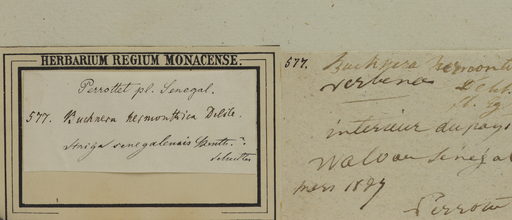 HERBARIUM REGIUM MONACENSE.
Perrottet pl. Senegal.
577. Buchnera hermonthica Delile.
Striga senegalensis Benth.
577. Buchnera hermonthi
verbena
interieur du pays
Walo au Sénégal
mars 1829
Perrott